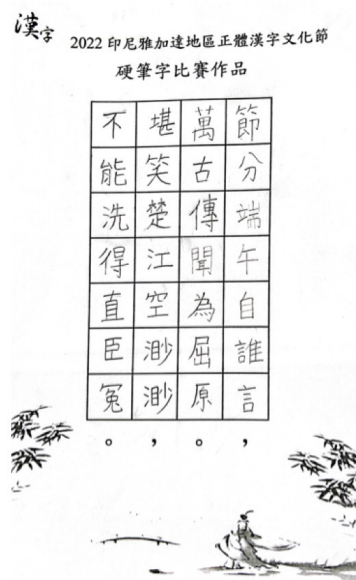 漢字
2022 印尼雅加達地區正體漢字文化節
硬筆字比賽作品
節分端午自誰言，
萬古傳聞為屈原。
堪笑楚江空渺渺，
不能洗得直臣冤。